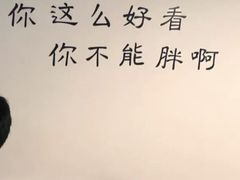 你这么好看
你不能胖啊